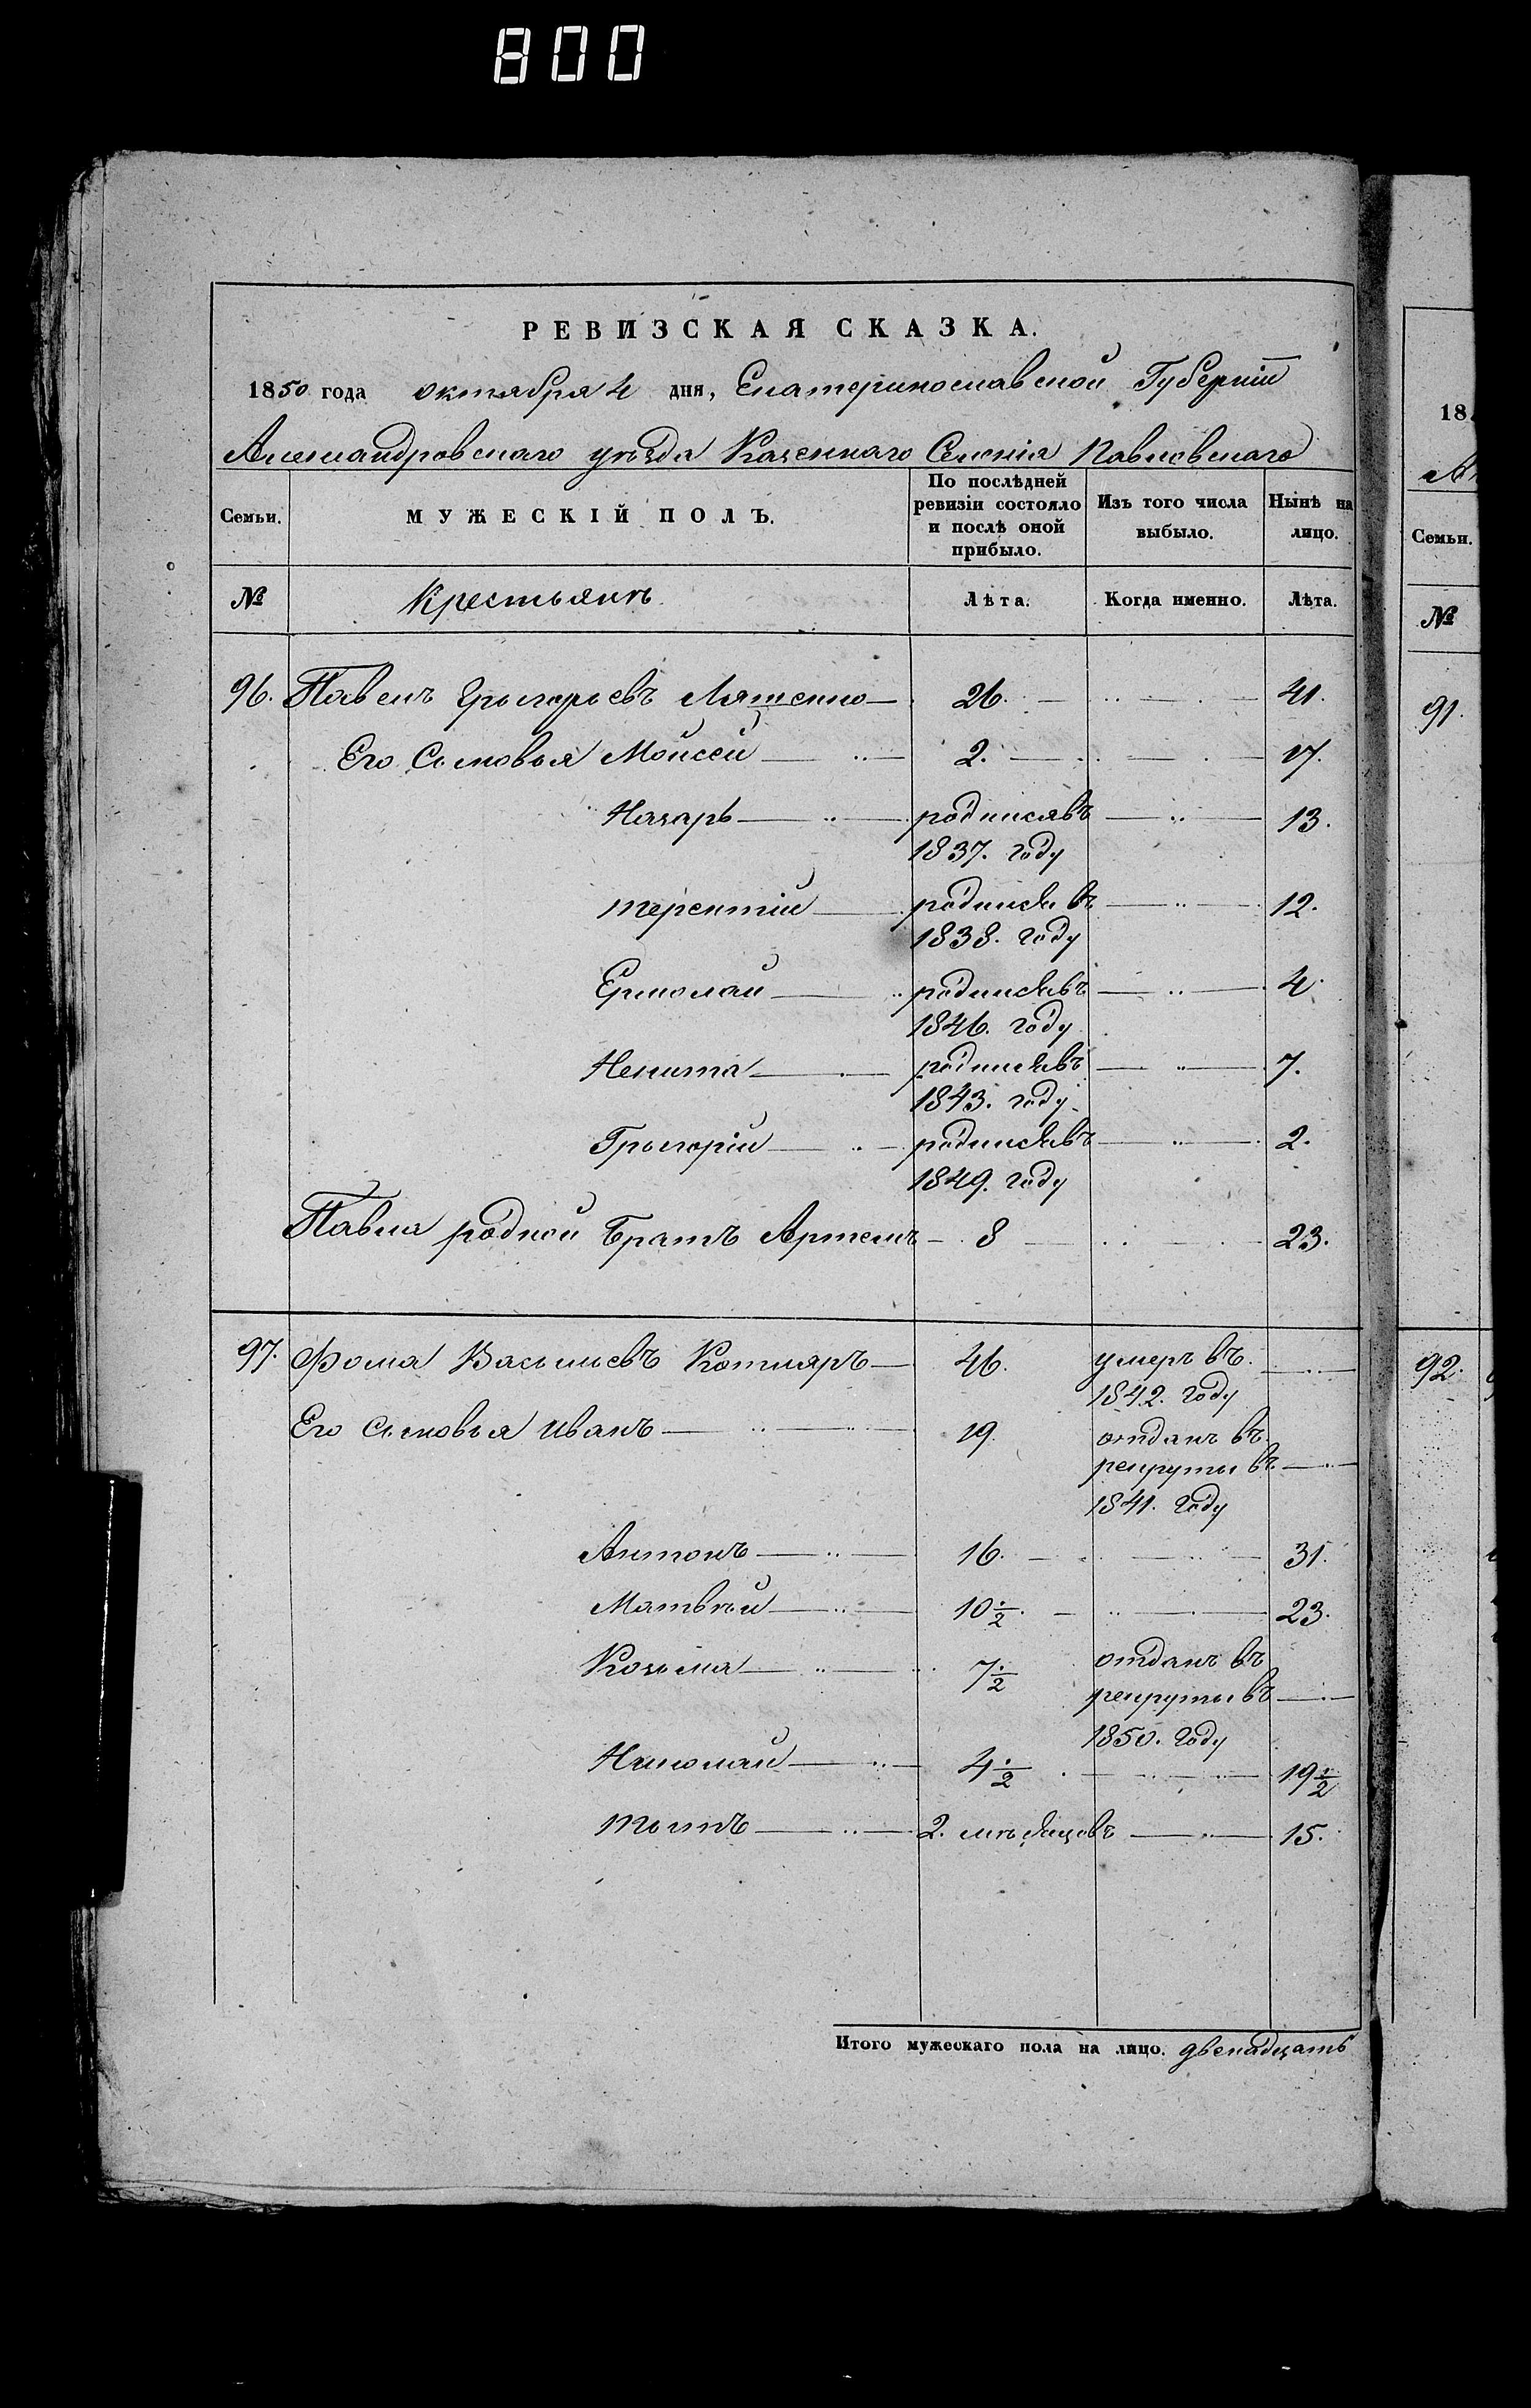 800
РЕВИЗСКАЯ СКАЗКА.
1850 года октября 4 дня, Екатеринославской Губерніи
Александровскаго уѣзда Казеннаго Селенія Павловскаго
Семьи. МУЖЕСКІЙ ПОЛЪ. По послѣдней ревизіи состояло и послѣ оной прибыло. Изъ того числа выбыло. Ныиѣ на лицо.
№ Крестьянъ Лѣта. Когда именно. Лѣта.
96. Павелъ Григорьевъ Ляшенко 26. 41.
Его Сыновья Моисей 2. 17.
Назаръ родился въ 13.
1837. году
Терентій родился въ 12.
1838. году
Ермолай родился въ 4.
1846. году
Некита родился въ 7.
1843. году
Григорій родился въ 2.
1849. году
Павла родной Братъ Артемъ 8 23.
97. Фома Васильевъ Котляръ 46. умеръ въ
1842. году
Его Сыновья Иванъ 19. отданъ въ
рекруты въ
1841. году
Антонъ 16. 31.
Матвѣй 10 1/2. 23.
Козьма 7 1/2 отданъ въ
рекруты въ
1850. году
Николай 4 1/2 19 1/2
Титъ 2. мѣсяцовъ 15.
Итого мужескаго пола на лицо. двенадцать
18
Семьи.
№
91.
92.